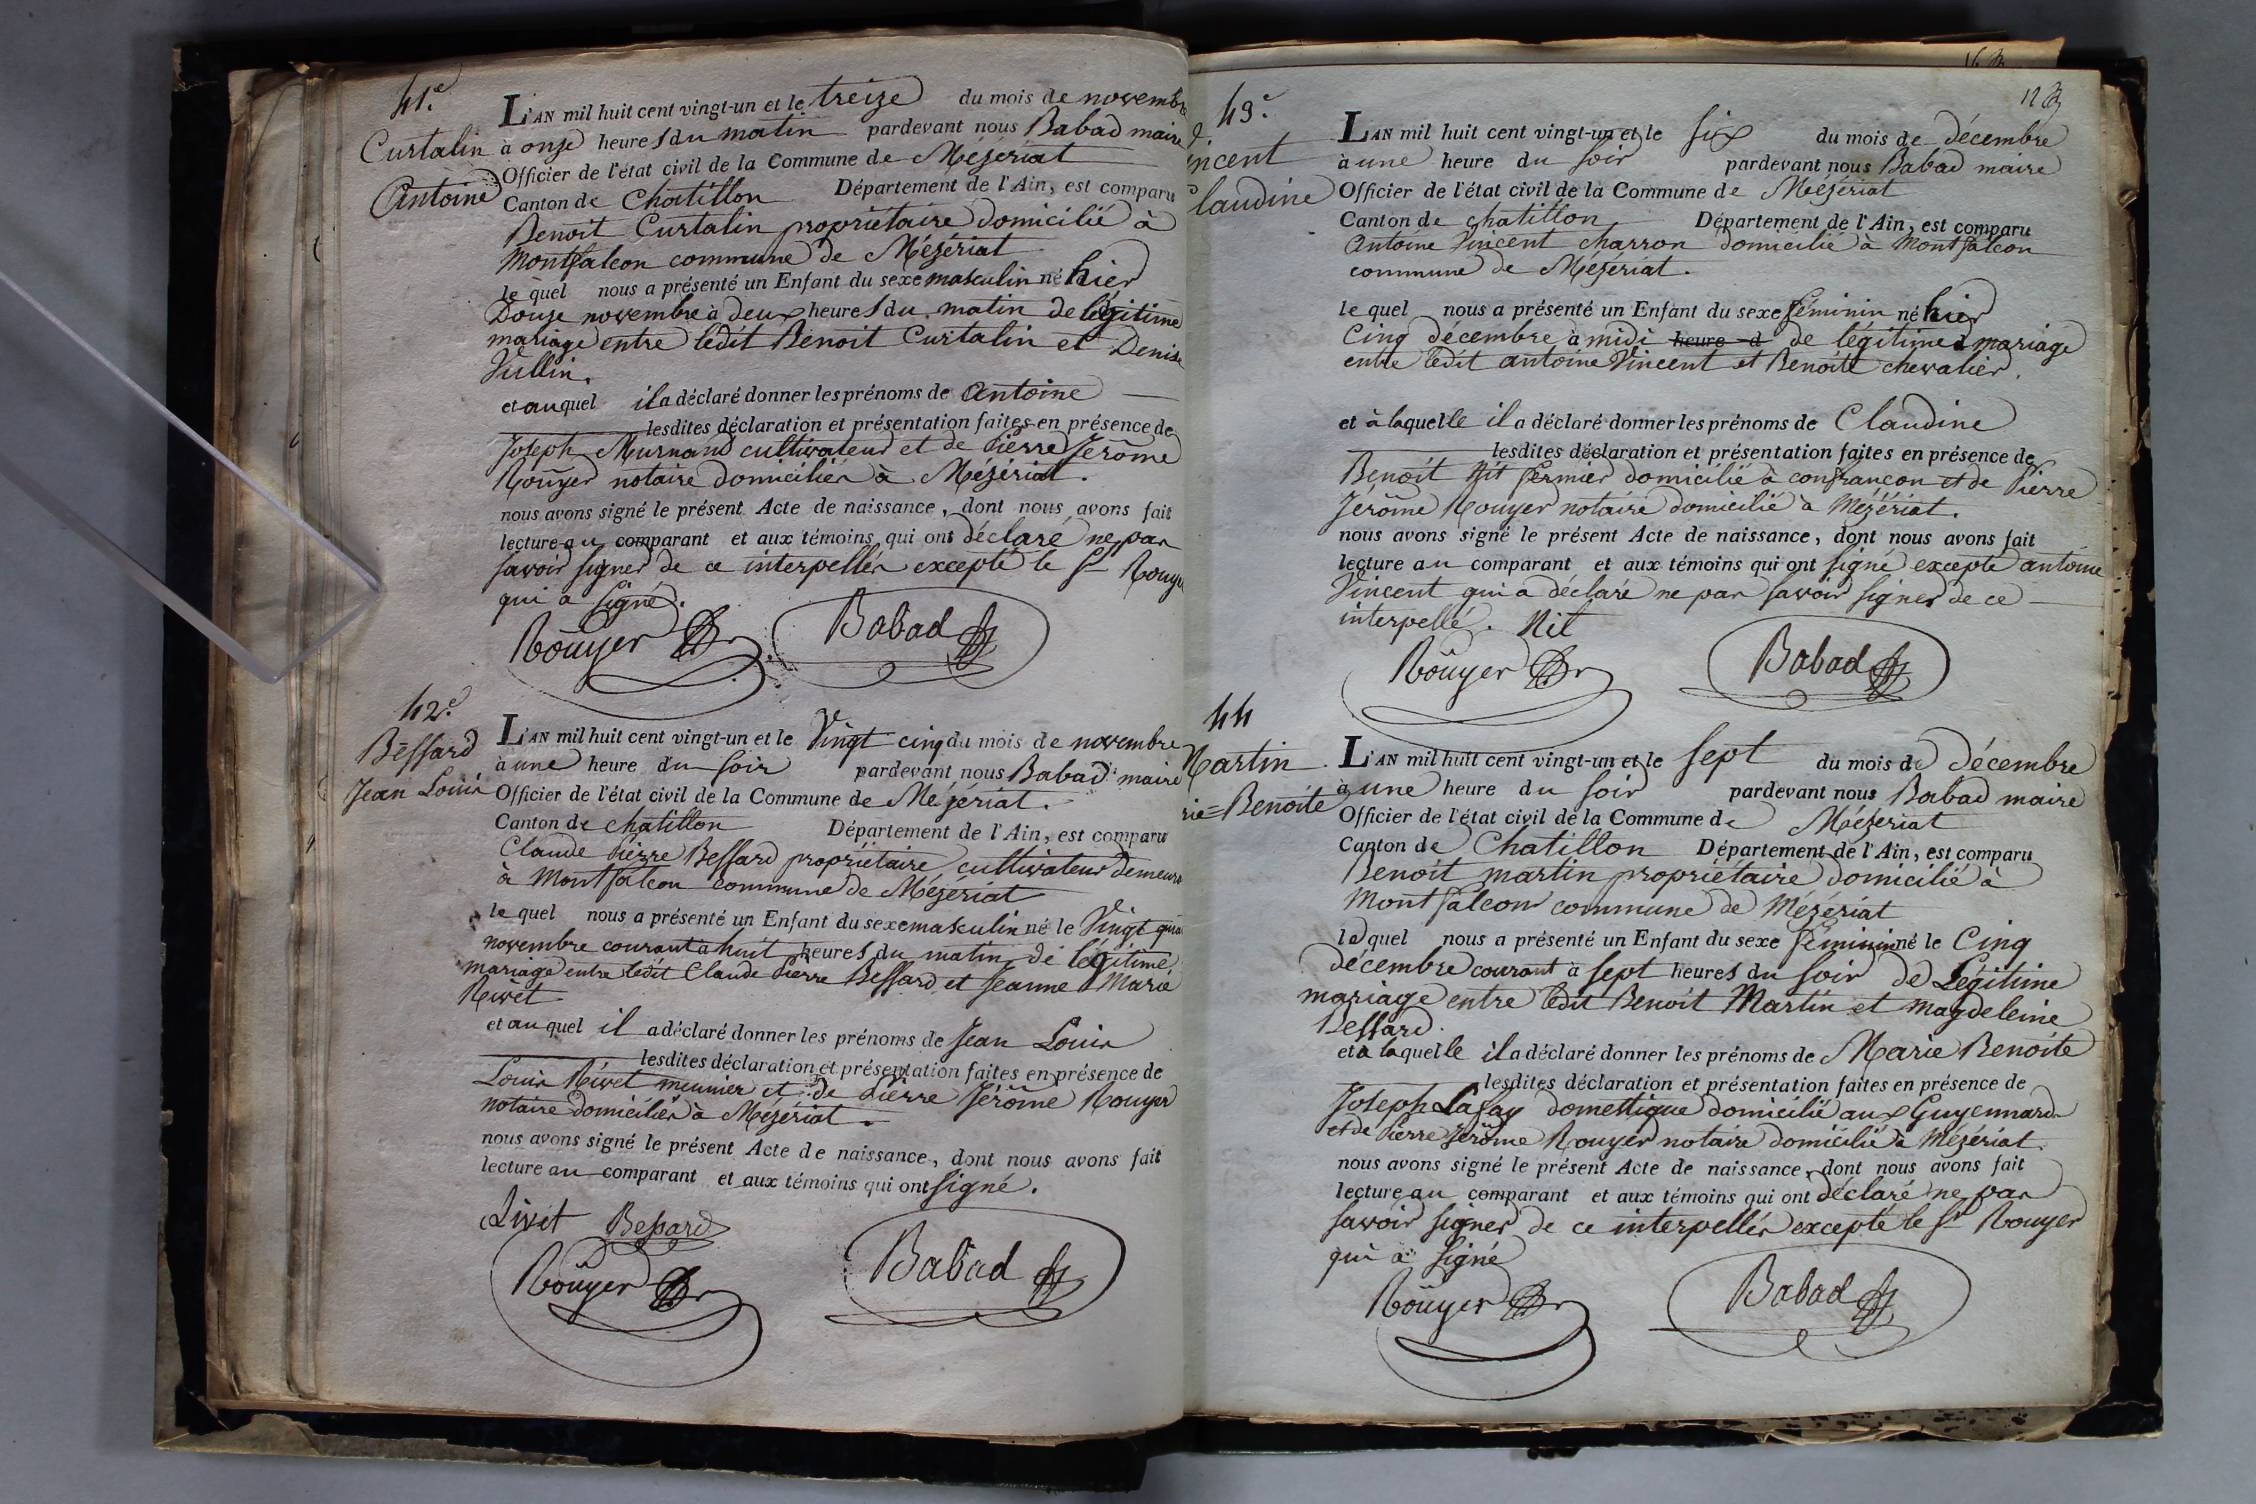 41.e
Curtalin
Antoine
L'AN mil huit cent vingt-un et le treize du mois de novembre
à onze heures du matin pardevant nous Babad maire
Officier de l'état civil de la Commune de Mézériat
Canton de Chatillon Département de l'Ain, est comparu
Benoit Curtalin propriétaire domicilié à
Montfalcon commune de Mézériat
le quel nous a présenté un Enfant du sexe masculin né hier
Douze novembre à deux heures du matin de légitime
mariage entre ledit Benoit Curtalin et Denise
Vullin.
et auquel il a déclaré donner les prénoms de Antoine
lesdites déclaration et présentation faites en présence de
Joseph Murnand cultivateur et de Pierre Jérôme
Roüyer notaire domiciliés à Mézériat.
nous avons signé le présent Acte de naissance, dont nous avons fait
lecture au comparant et aux témoins qui ont déclaré ne pas
savoir signer de ce interpellés excepté le Sr Rouyer
qui a signé.
Roüyer Babad
42.e
Bessard
Jean Louis
L'AN mil huit cent vingt-un et le Vingt cinq du mois de novembre
à une heure du soir pardevant nous Babad maire
Officier de l'état civil de la Commune de Mézériat.
Canton de chatillon Département de l'Ain, est comparu
Claude Pierre Bessard propriétaire cultivateur demeurant
à Montfalcon commune de Mézériat
le quel nous a présenté un Enfant du sexe masculin né le Vingt quatre
novembre courant à huit heures du matin de légitime
mariage entre ledit Claude Pierre Bessard et Jeanne Marie
Rivet
et au quel il a déclaré donner les prénoms de Jean Louis
lesdites déclaration et présentation faites en présence de
Louis Rivet meunier et de Pierre Jérôme Rouyer
notaire domiciliés à Mézériat.
nous avons signé le présent Acte de naissance, dont nous avons fait
lecture au comparant et aux témoins qui ont signé.
Rivet Bessard
Roüyer Babad
43.e
Vincent
Claudine
L'AN mil huit cent vingt-un et le six du mois de décembre
à une heure du soir pardevant nous Babad maire
Officier de l'état civil de la Commune de Mézériat
Canton de chatillon Département de l'Ain, est comparu
Antoine Vincent charron domicilié à Montfalcon
commune de Mézériat.
le quel nous a présenté un Enfant du sexe féminin né hier
Cinq décembre à midi heure d de légitime mariage
entre ledit antoine Vincent et Benoite chevalier.
et à laquelle il a déclaré donner les prénoms de Claudine
lesdites déclaration et présentation faites en présence de
Benoit Nit fermier domicilié à confrançon et de Pierre
Jérôme Rouyer notaire domicilié à Mézériat.
nous avons signé le présent Acte de naissance, dont nous avons fait
lecture au comparant et aux témoins qui ont signé excepté antoine
Vincent qui a déclaré ne pas savoir signer de ce
interpellé. Nit
Roüyer Babad
44
Martin
rie=Benoite
L'AN mil huit cent vingt-un et le sept du mois de décembre
à une heure du soir pardevant nous Babad maire
Officier de l'état civil de la Commune de Mézériat
Canton de Chatillon Département de l'Ain, est comparu
Benoit martin propriétaire domicilié à
Montfalcon commune de Mézériat
le quel nous a présenté un Enfant du sexe féminin né le Cinq
décembre courant à sept heures du soir de Légitime
mariage entre ledit Benoit Martin et magdeleine
Bessard.
et à laquelle il a déclaré donner les prénoms de Marie Benoite
lesdites déclaration et présentation faites en présence de
Joseph Lafay domestique domicilié aux Guyennards
et de Pierre Jérôme Rouyer notaire domicilié à Mézériat
nous avons signé le présent Acte de naissance, dont nous avons fait
lecture au comparant et aux témoins qui ont déclaré ne pas
savoir signer de ce interpellés excepté le Sr Rouyer
qui a signé
Roüyer Babad